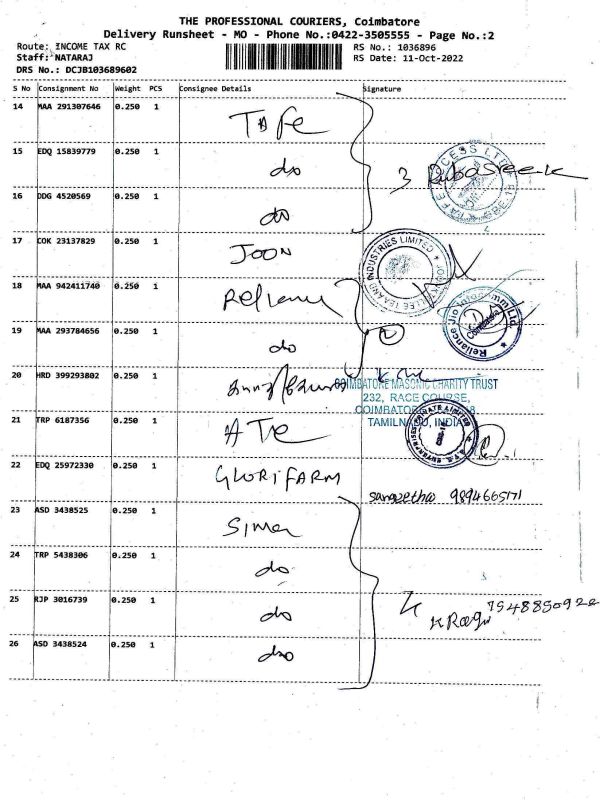 THE PROFESSIONAL COURIERS, Coimbatore
Delivery Runsheet - MO - Phone No.:0422-3505555 - Page No.:2
Route: INCOME TAX RC
RS No.: 1036896
Staff: NATARAJ
RS Date: 11-Oct-2022
DRS No.: DCJB103689602
S No Consignment No Weight PCS Consignee Details Signature
14 MAA 291307646 0.250 1 TAFE
15 EDQ 15839779 0.250 1 do
16 DDG 4520569 0.250 1 do
3
17 COK 23137829 0.250 1 JOON
INDUSTRIES LIMITED
18 MAA 942411740 0.250 1 Reliance
Reliance Jio Infocomm Ltd
Coimbatore
19 MAA 293784656 0.250 1 do
2
20 HRD 399293802 0.250 1
COIMBATORE MASONIC CHARITY TRUST
232, RACE COURSE,
COIMBATORE
TAMILNADU, INDIA
21 TRP 6187356 0.250 1 ATE
22 EDQ 25972330 0.250 1 GLORIFARM
sangeetha 9894665171
23 ASD 3438525 0.250 1
24 TRP 5438306 0.250 1 do
25 RJP 3016739 0.250 1 do
4
K Ragu 7548850922
26 ASD 3438524 0.250 1 do